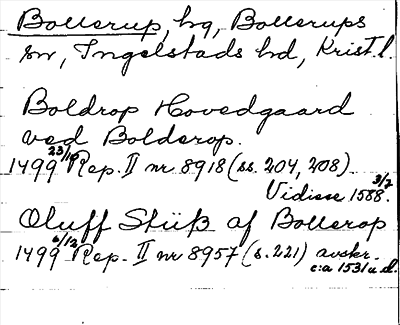 Bollerup, hg, Bollerups
sn, Ingelstads hd, Krist.l.
Boldrop Hovedgaard
ved Bolderop.
1499 23/10 Rep. II nr 8918 (ss. 204, 208)
Vidisse 1588 3/2.
Oluff Stüß af Bollerop
1499 6/12 Rep. II nr 8957 (s. 221) avskr.
c:a 1531 u.d.